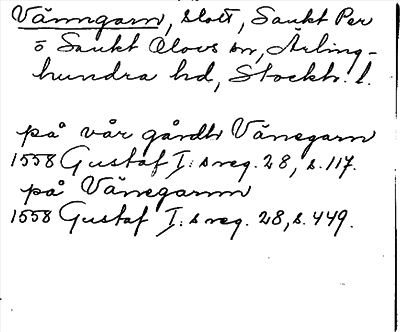 Vänngarn, slott, Sankt Per
o Sankt Olovs sn, Ärling-
hundra hd, Stockh. l.
på vår gårdh Vänegarn
1558 Gustaf I:s reg. 28, s. 117.
på Vänegarnn
1558 Gustaf I:s reg. 28, s. 449.